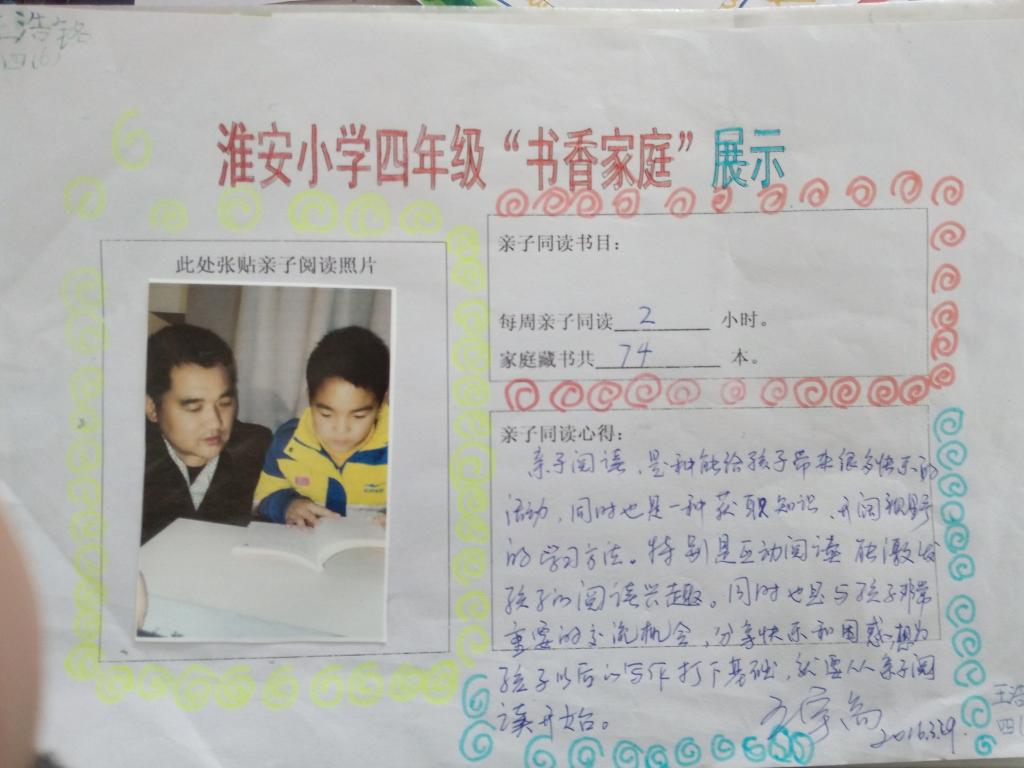 王浩铭
四(6)
6
淮安小学四年级“书香家庭”展示
此处张贴亲子阅读照片
亲子同读书目：
每周亲子同读 2 小时。
家庭藏书共 74 本。
亲子同读心得：
亲子阅读，是种能给孩子带来很多快乐的
活动，同时也是一种获取知识、开阔视野
的学习方法。特别是互动阅读能激发
孩子的阅读兴趣。同时也是与孩子非常
重要的交流机会，分享快乐和困惑，想为
孩子以后的写作打下基础，就要从亲子阅
读开始。
2016.3.29.
王浩
四(